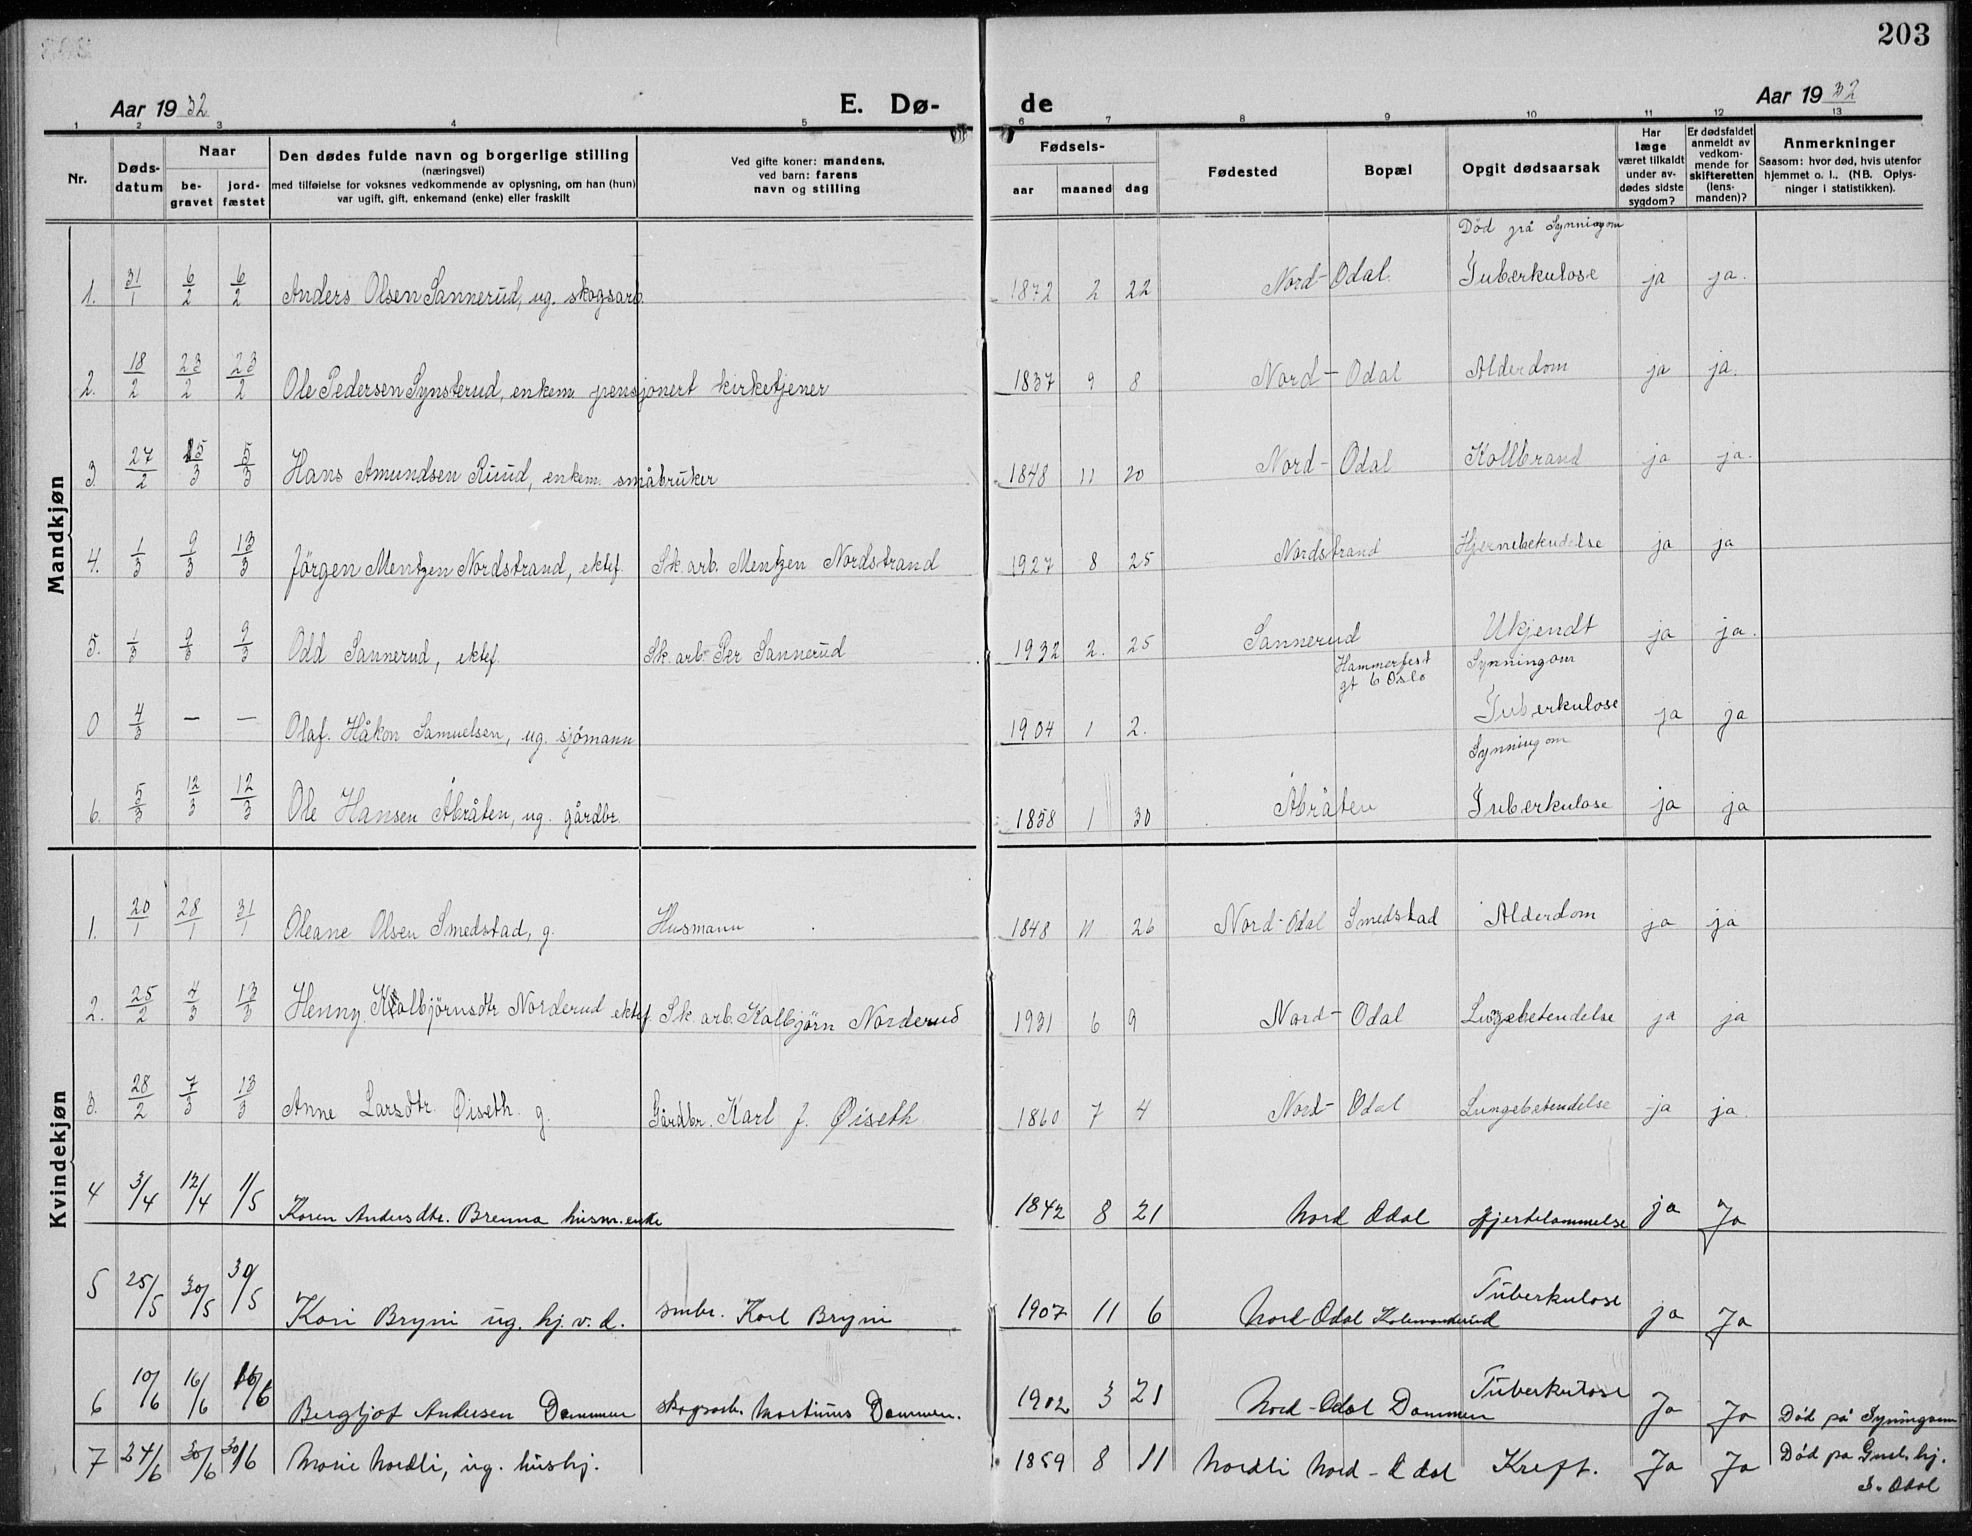 203
Aar 1932 E. Dø- de Aar 1932
1 2 3 4 5 6 7 8 9 10 11 12 13
Nr. Dødsdatum Naar begravet jordfæstet
Den dødes fulde navn og borgerlige stilling
(næringsvei)
med tilføielse for voksnes vedkommende av oplysning, om han (hun)
var ugift, gift, enkemand (enke) eller fraskilt
Ved gifte koner: mandens,
ved barn: farens
navn og stilling
Fødsels-
aar maaned dag
Fødested
Bopæl
Opgit dødsaarsak
Har læge været tilkaldt under avdødes sidste sygdom?
Er dødsfaldet anmeldt av vedkommende for skifteretten (lensmanden)?
Anmerkninger
Saasom: hvor død, hvis utenfor
hjemmet o. l., (NB. Oplys-
ninger i statistikken).
Mandkjøn
Død på Synningom
1. 31/1 6/2 6/2 Anders Olsen Sannerud, ug. skogsarb. 1872 2 22 Nord-Odal. Tuberkulose ja ja.
2. 18/2 23/2 23/2 Ole Pedersen Synsterud, enkem. pensjonert kirketjener 1837 9 8 Nord-Odal Alderdom ja ja.
3 27/2 5/3 5/3 Hans Amundsen Ruud, enkem. småbruker 1848 11 20 Nord-Odal Kollbrand ja ja.
4. 1/3 9/3 13/3 Jörgen Mentzen Nordstrand, ektef. Sk. arb. Mentzen Nordstrand 1927 8 25 Nordstrand Hjernebetendelse ja ja
5. 1/3 9/3 9/3 Odd Sannerud, ektef. Sk. arb. Per Sannerud 1932 2. 25 Sannerud Ukjendt ja ja.
Hammerfest gt 6 Oslo Synningom
0 4/3 — — Olaf. Håkon Samuelsen, ug. sjömann 1904 1 2. Tuberkulose ja ja
Synningom
6. 5/3 12/3 12/3 Ole Hansen Åbråten, ug. gårdbr. 1858 1 30 Åbråten Tuberkulose ja ja
Kvindekjøn
1. 20/1 28/1 31/1 Oleane Olsen Smedstad, g. Husmann 1848 11 26 Nord-Odal Smedstad Alderdom ja ja
2. 25/2 4/3 13/3 Henny Kolbjörnsdtr Norderud ektef Sk. arb. Kolbjörn Norderud 1931 6 9 Nord-Odal Lungebetendelse ja ja
3. 28/2 7/3 13/3 Anne Larsdtr. Øiseth. g. Gårdbr. Karl J. Øiseth 1860 7 4 Nord-Odal Lungebetendelse ja ja.
4 3/4 12/4 1/5 Karen Andersdtr. Brenna husm.enke 1842 8 21 Nord Odal Hjertelammelse ja Ja
5 25/5 30/5 30/5 Kari Bryni ug. hj. v. d. smbr. Karl Bryni 1907 11 6 Nord-Odal Tuberkulose ja Ja
6 10/6 16/6 16/6 Bergljot Andersen Dammen skogsarb. Martinus Dammen. 1902 3 21 Nord-Odal Dammen Tuberkulose Ja Ja Död på Synningom
7 24/6 30/6 30/6 Marie Nordli, ug. hushj. 1859 8 11 Nordli Nord-Odal Kreft. Ja Ja Död på hj.
S. Odal